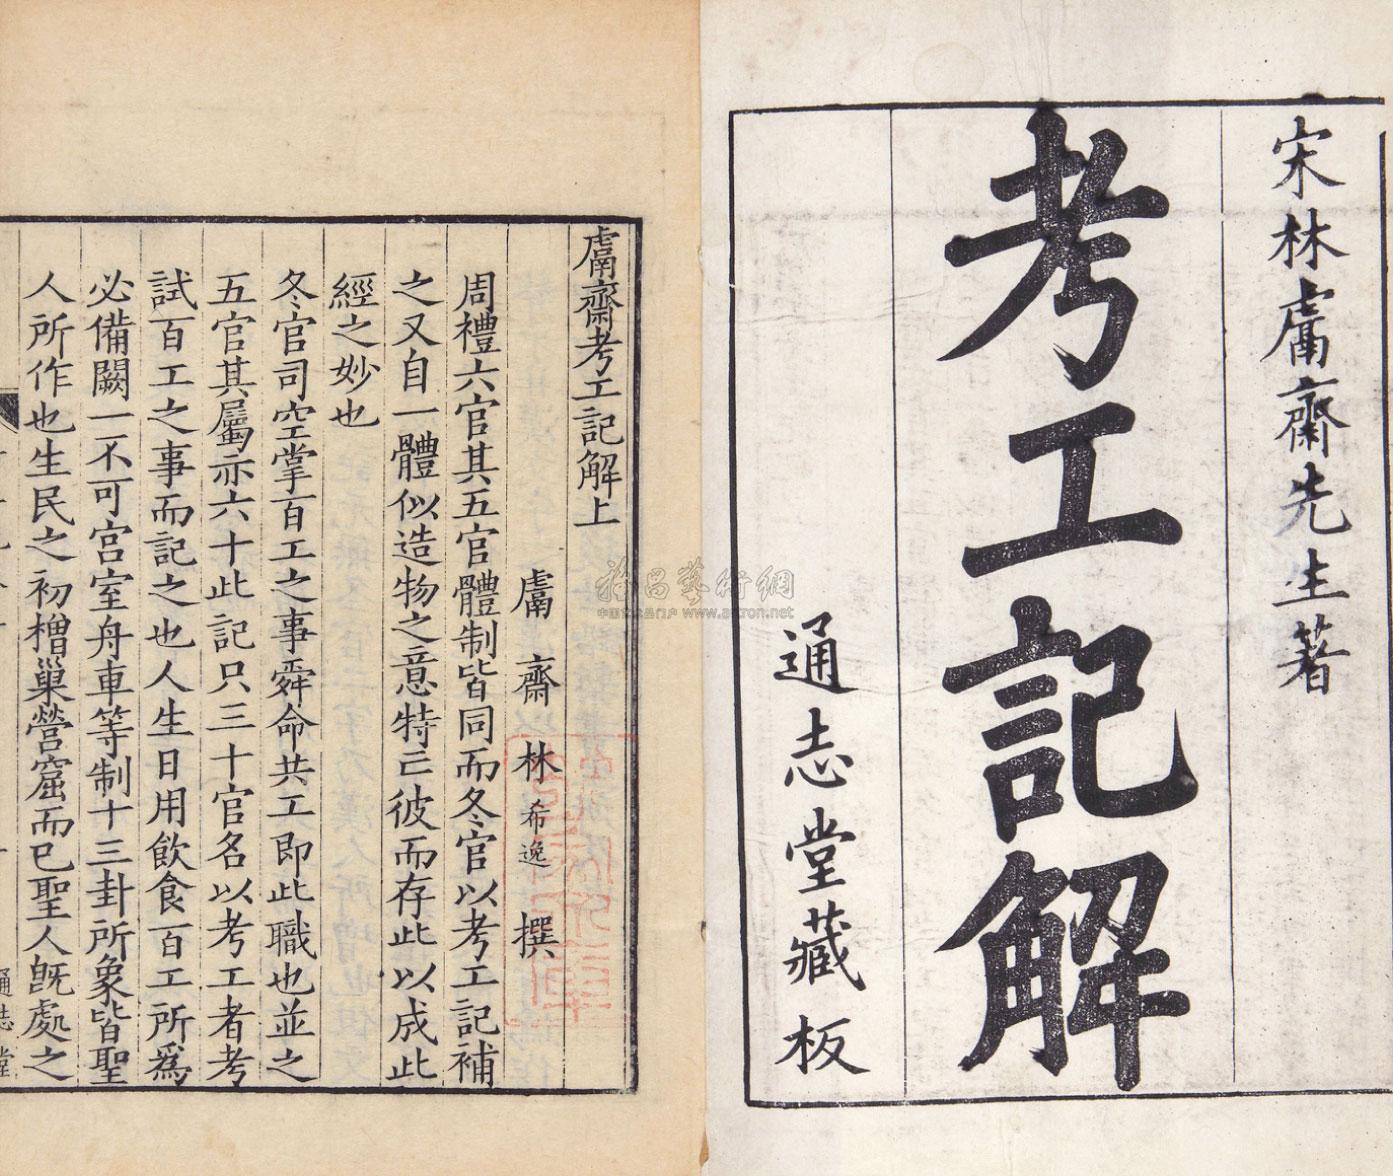 宋林鬳齋先生著
考工記解
通志堂藏板
鬳齋考工記解上
鬳齋林希逸撰
周禮六官其五官體制皆同而冬官以考工記補
之又自一體似造物之意特亡彼而存此以成此
經之妙也
冬官司空掌百工之事舜命共工即此職也並之
五官其屬亦六十此記只三十官名以考工者考
試百工之事而記之也人生日用飲食百工所爲
必備闕一不可宮室舟車等制十三卦所象皆聖
人所作也生民之初橧巢營窟而已聖人旣處之
通志堂
www.artron.net